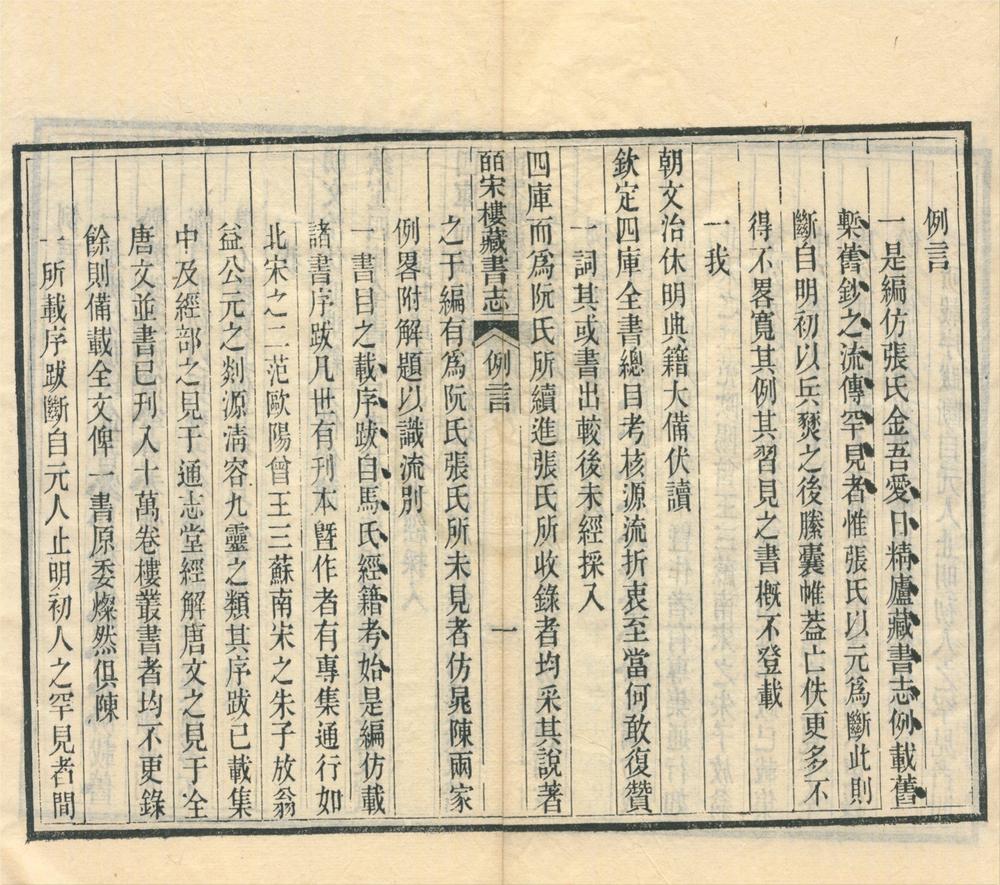 例言
一是編仿張氏金吾愛日精廬藏書志例載舊
槧舊鈔之流傳罕見者惟張氏以元爲斷此則
斷自明初以兵燹之後縢囊帷蓋亡佚更多不
得不畧寬其例其習見之書概不登載
一我
朝文治休明典籍大備伏讀
欽定四庫全書總目考核源流折衷至當何敢復贊
一詞其或書出較後未經採入
四庫而爲阮氏所續進張氏所收錄者均采其說著
皕宋樓藏書志 例言 一
之于編有爲阮氏張氏所未見者仿晁陳兩家
例畧附解題以識流別
一書目之載序跋自馬氏經籍考始是編仿載
諸書序跋凡世有刊本曁作者有專集通行如
北宋之二范歐陽曾王三蘇南宋之朱子放翁
益公元之剡源淸容九靈之類其序跋已載集
中及經部之見于通志堂經解唐文之見于全
唐文並書已刊入十萬卷樓叢書者均不更錄
餘則備載全文俾一書原委燦然俱陳
一所載序跋斷自元人止明初人之罕見者間